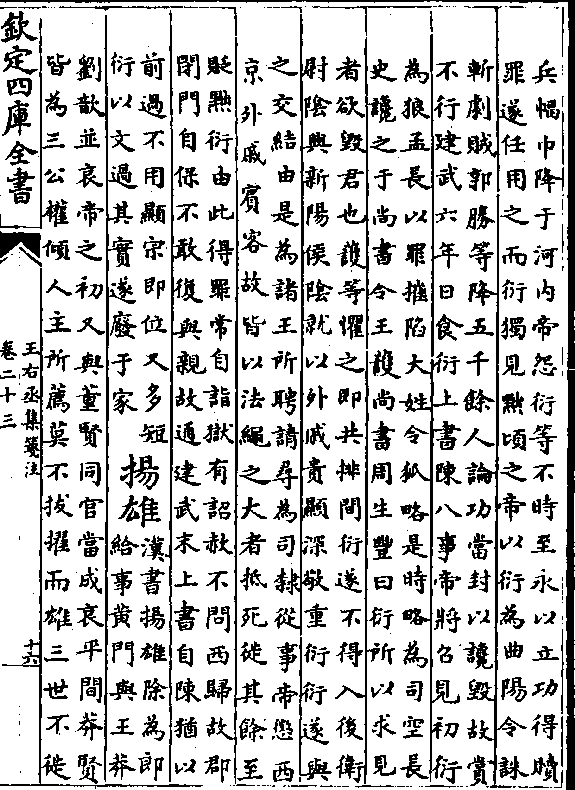 兵幅巾降于河內帝怨衍等不時至永以立功得贖
罪遂任用之而衍獨見黜頃之帝以衍為曲陽令誅
斬劇賊郭勝等降五千餘人論功當封以讒毀故賞
不行建武六年日食衍上書陳八事帝將召見初衍
為狼孟長以罪摧陷大姓令狐略是時略為司空長
史讒之于尚書令王護尚書周生豐曰衍所以求見
者欲毀君也護等懼之即共排間衍遂不得入後衛
尉陰興新陽侯陰就以外戚貴顯深敬重衍衍遂與
之交結由是為諸王所聘請尋為司隸從事帝懲西
京外戚賓客故皆以法繩之大者抵死徙其餘至
貶黜衍由此得罪常自詣獄有詔赦不問西歸故郡
閉門自保不敢復與親故通建武末上書自陳猶以
前過不用顯宗即位又多短
衍以文過其實遂廢于家
揚雄
漢書揚雄除為郎
給事黃門與王莽
劉歆並哀帝之初又與董賢同官當成哀平間莽賢
皆為三公權傾人主所薦莫不拔擢而雄三世不徙
欽定四庫全書
王右丞集箋注
卷二十三
十六